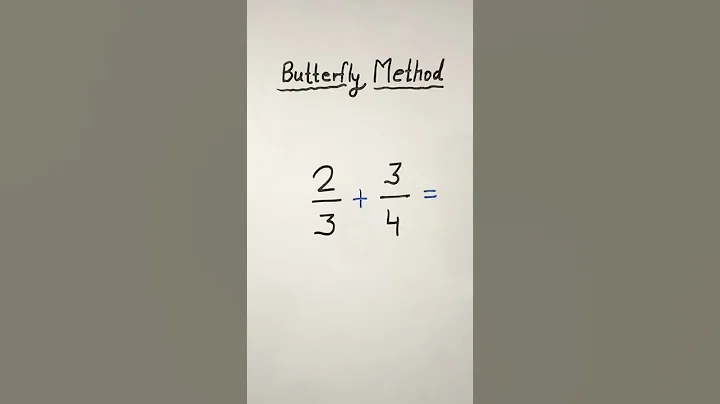 Butterfly Method
2/3 + 3/4 =